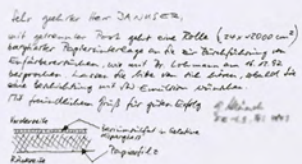 Sehr geehrter Herr JANUSER,
mit getrennter Post geht eine Rolle (24 x 2000 cm²)
barytierter Papierunterlage an Sie zur Durchführung von
wie mit Dr. Lohmann am 16.07.92
besprochen. Lassen Sie bitte von sich hören, sobald Sie
eine Beschichtung mit der Emulsion wünschen.
Mit freundlichem Gruß für guten Erfolg
Vorderseite
Bariumsulfat in Gelatine
dispergiert
Papierfilz
Rückseite